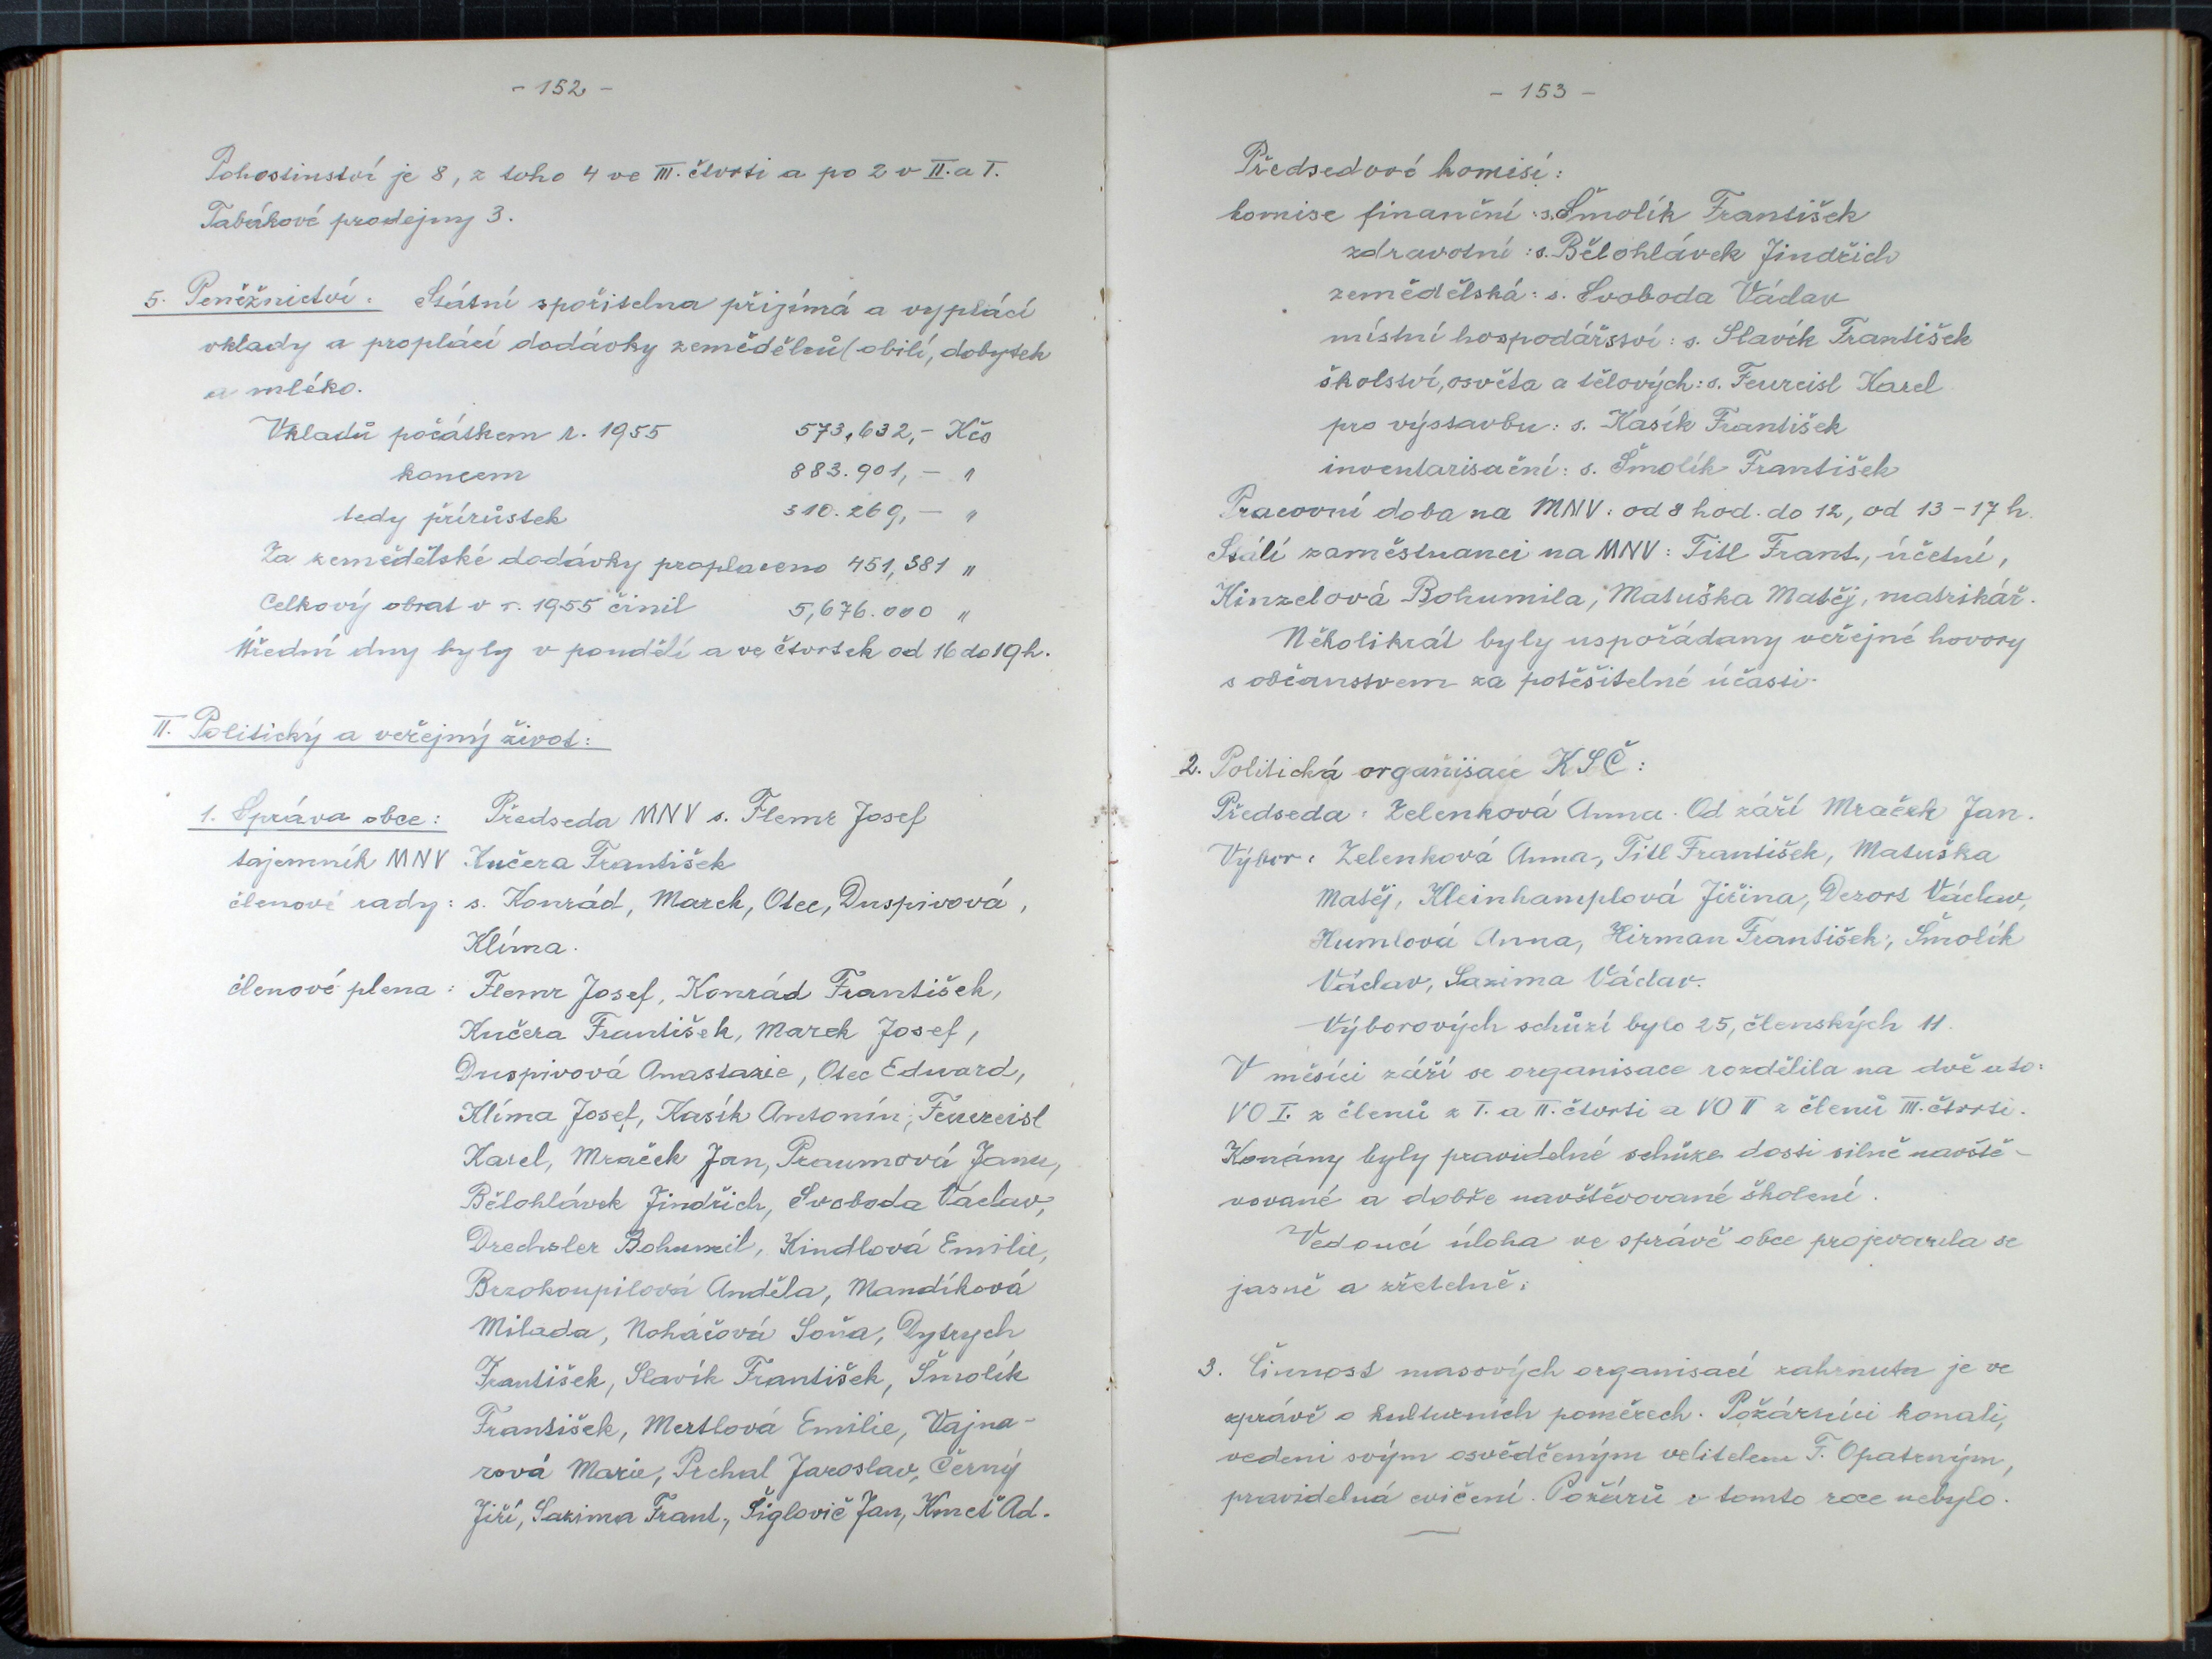 - 152 -
Pohostinství je 8, z toho 4 ve III. čtvrti a po 2 v II. a I.
Tabákové prodejny 3.
5. Peněžnictví: Státní spořitelna přijímá a vyplácí
vklady a proplácí dodávky zemědělců (obilí, dobytek
a mléko.
Vkladů počátkem r. 1955 573,632,- Kčs
koncem 883.901,- "
tedy přírůstek 310.269,- "
Za zemědělské dodávky proplaceno 451,381 "
Celkový obrat v r. 1955 činil 5,676.000 "
Úřední dny byly v pondělí a ve čtvrtek od 16 do 19 h.
II. Politický a veřejný život:
1. Správa obce: Předseda MNV s. Flemr Josef
tajemník MNV Kučera František
členové rady: s. Konrád, Marek, Otec, Duspivová,
Klíma.
členové plena: Flemr Josef, Konrád František,
Kučera František, Marek Josef,
Duspivová Anastazie, Otec Edward,
Klíma Josef, Kasík Antonín, Feuereisl
Karel, Mraček Jan, Praumová Jana,
Bělohlávek Jindřich, Svoboda Václav,
Drechsler Bohumil, Kindlová Emilie,
Brzokoupilová Anděla, Mandíková
Milada, Noháčová Soňa, Dytrych
František, Slavík František, Šmolík
František, Mertlová Emilie, Vajna-
rová Marie, Prchal Jaroslav, Černý
Jiří, Sazima Frant., Šiglovič Jan, Kmeť Ad.
- 153 -
Předsedové komisí:
komise finanční: s. Šmolík František
zdravotní: s. Bělohlávek Jindřich
zemědělská: s. Svoboda Václav
místní hospodářství: s. Slavík František
školství, osvěta a tělových: s. Feureisl Karel
pro výstavbu: s. Kasík František
inventarisační: s. Šmolík František
Pracovní doba na MNV: od 8 hod. do 12, od 13 - 17 h.
Stálí zaměstnanci na MNV: Titl Frant., účetní,
Kinzelová Bohumila, Matuška Matěj, matrikář.
Několikrát byly uspořádany veřejné hovory
s občanstvem za potěšitelné účasti.
2. Politická organisace KSČ:
Předseda: Zelenková Anna. Od září Mraček Jan.
Výbor: Zelenková Anna, Titl František, Matuška
Matěj, Kleinhamplová Jiřina, Dezort Václav,
Humlová Anna, Hirman František, Šmolík
Václav, Sazima Václav.
Výborových schůzí bylo 25, členských 11.
V měsíci září se organisace rozdělila na dvě a to:
VO I. z členů z I. a II. čtvrti a VO II z členů III. čtvrti.
Konány byly pravidelné schůze dosti silně navště-
vované a dobře navštěvované školení.
Vedoucí úloha ve správě obce projevovala se
jasně a zřetelně.
3. Činnost masových organisací zahrnuta je ve
zprávě o kulturních poměrech. Požárníci konali,
vedeni svým osvědčeným velitelem F. Opatrným,
pravidelná cvičení. Požárů v tomto roce nebylo.